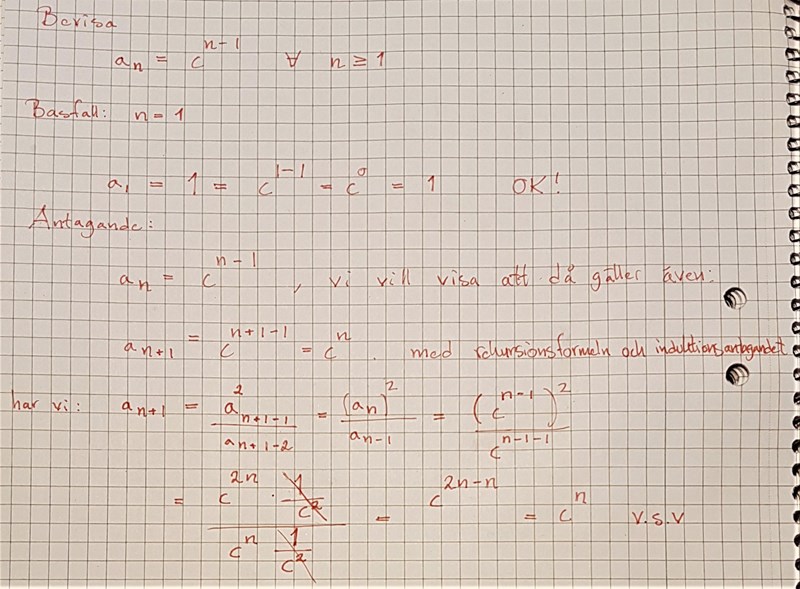 Bevisa
aₙ = cⁿ⁻¹ ∀ n ≥ 1
Basfall: n = 1
a₁ = 1 = c¹⁻¹ = c⁰ = 1 OK!
Antagande:
aₙ = cⁿ⁻¹, vi vill visa att då gäller även:
aₙ₊₁ = cⁿ⁺¹⁻¹ = cⁿ. med rekursionsformeln och induktionsantagandet
har vi: aₙ₊₁ = a²ₙ₊₁₋₁ / aₙ₊₁₋₂ = (aₙ)² / aₙ₋₁ = (cⁿ⁻¹)² / cⁿ⁻¹⁻¹
= (c²ⁿ · 1/c²) / (cⁿ 1/c²) = c²ⁿ⁻ⁿ = cⁿ v.s.v